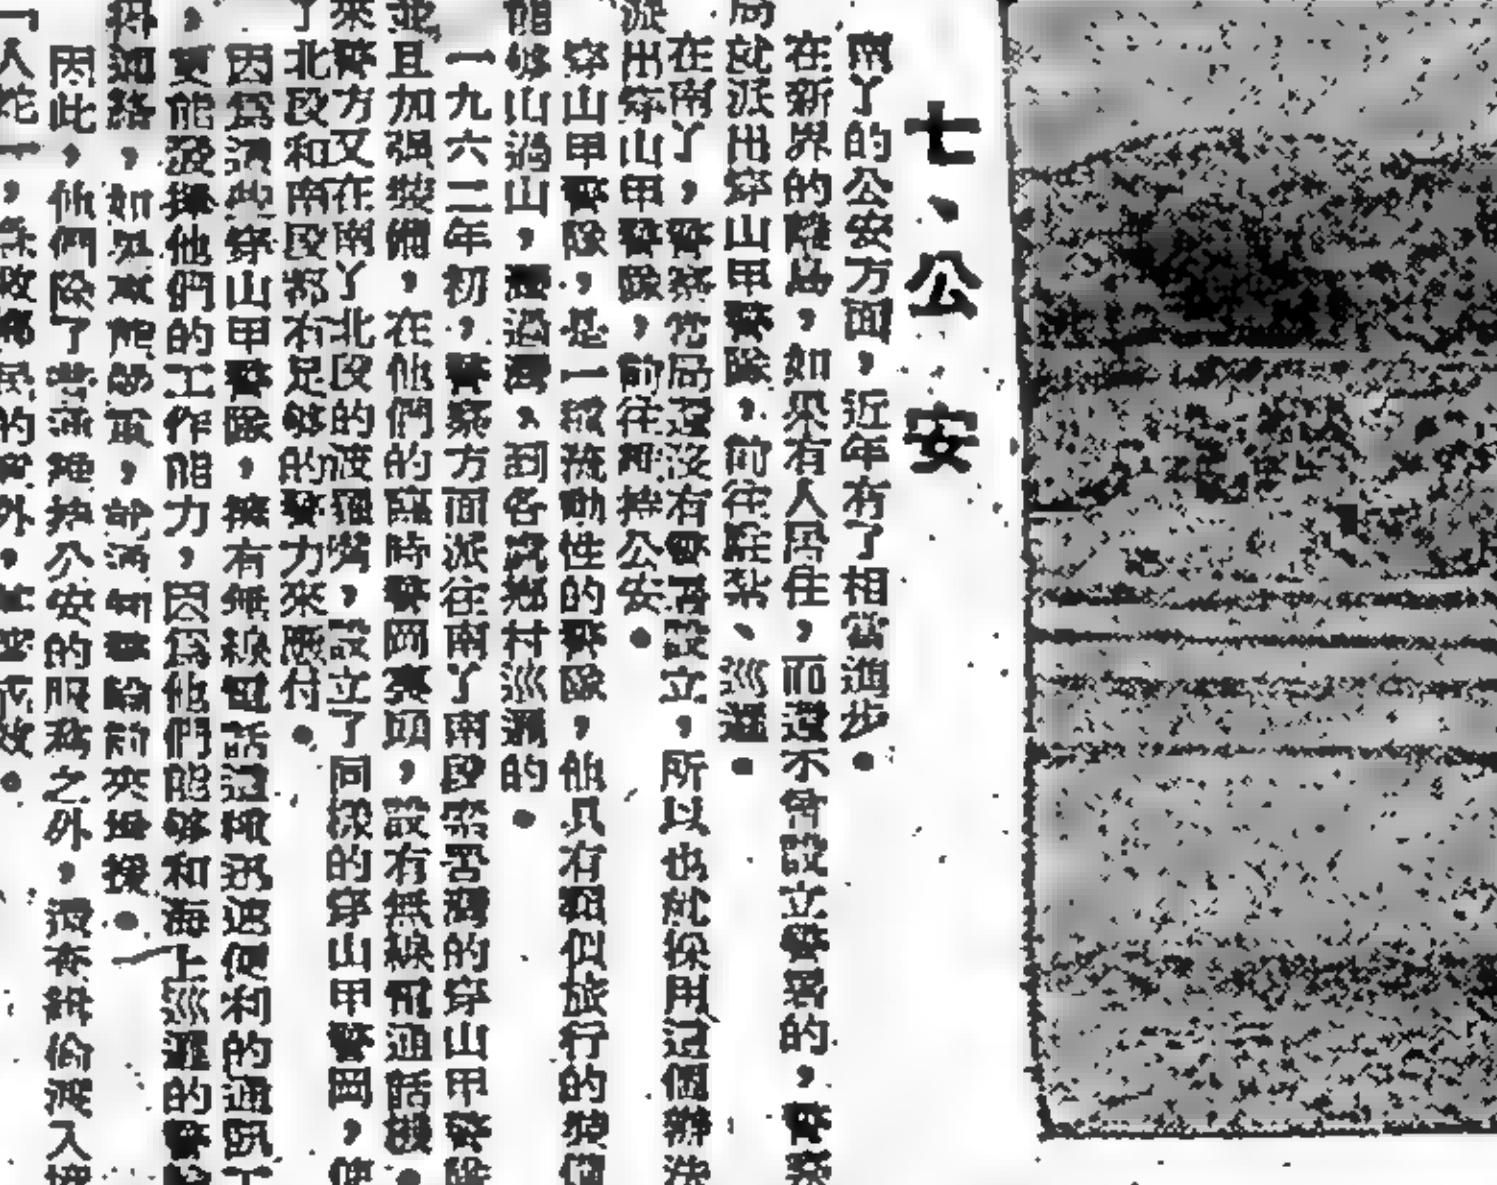 七、公安
南丫的公安方面，近年有了相當進步。
在新界的離島，如果有人居住，而還不曾設立警署的，警察
局就派出穿山甲警隊，前往駐紮、巡邏。
在南丫，警察當局還沒有警署設立，所以也就採用這個辦法
派出穿山甲警隊，前往維持公安。
穿山甲警隊，是一種流動性的警隊，他具有類似旅行的裝備
能够山過山，灣過灣，到各處鄉村巡邏的。
一九六二年初，警察方面派往南丫南段索罟灣的穿山甲警隊
並且加强裝備，在他們的臨時警岡裏頭，設有無線電通話機。
來警方又在南丫北段的渡 ，設立了同樣的穿山甲警岡，使
了北段和南段都有足够的警力來應付。
因爲這些穿山甲警隊，擁有無線電話這種迅速便利的通訊工
，更能發揮他們的工作能力，因爲他們能够和海上巡邏的警
聯絡，如果 ，
因此，他們除了 維持公安的服務之外， 偷渡入境
「人蛇」， 的 外， 成效。